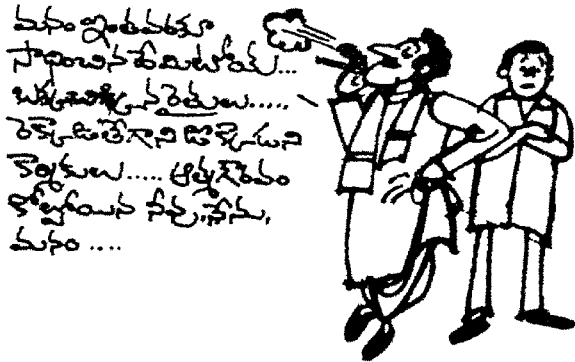 మనం ఇంతవరకూ
సాధించినదేమిటోయ్...
బక్కచిక్కిన రైతులు.....
రెక్కాడితేగాని డొక్కాడని
కార్మికులు..... ఆత్మగౌరవం
కోల్పోయిన నీవ్వు,నేను,
మనం ....